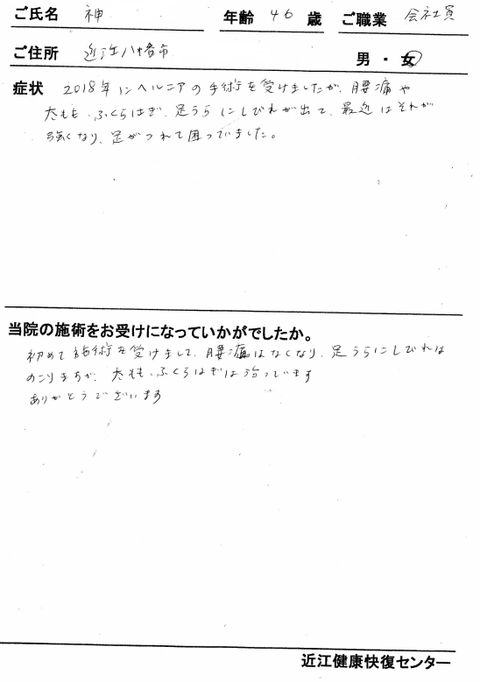 ご氏名 神 年齢 46 歳 ご職業 会社員
ご住所 近江八幡市 男・女
症状 2018年にヘルニアの手術を受けましたが、腰痛や
太もも、ふくらはぎ、足うらにしびれが出て、最近はそれが
強くなり、足がつれて困っていました。
当院の施術をお受けになっていかがでしたか。
初めて施術を受けまして、腰痛はなくなり、足うらにしびれは
のこりますが、太もも、ふくらはぎは治っています
ありがとうございます
近江健康快復センター